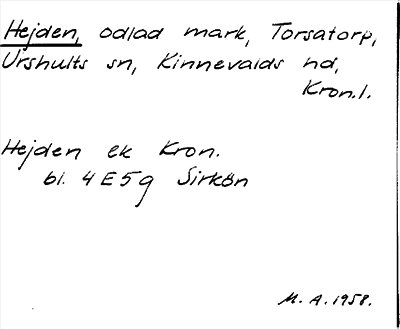 Hejden, odlad mark, Torsatorp,
Urshults sn, Kinnevalds hd,
Kron.l.
Hejden ek Kron.
bl. 4E5g Sirkön
M. A. 1958.